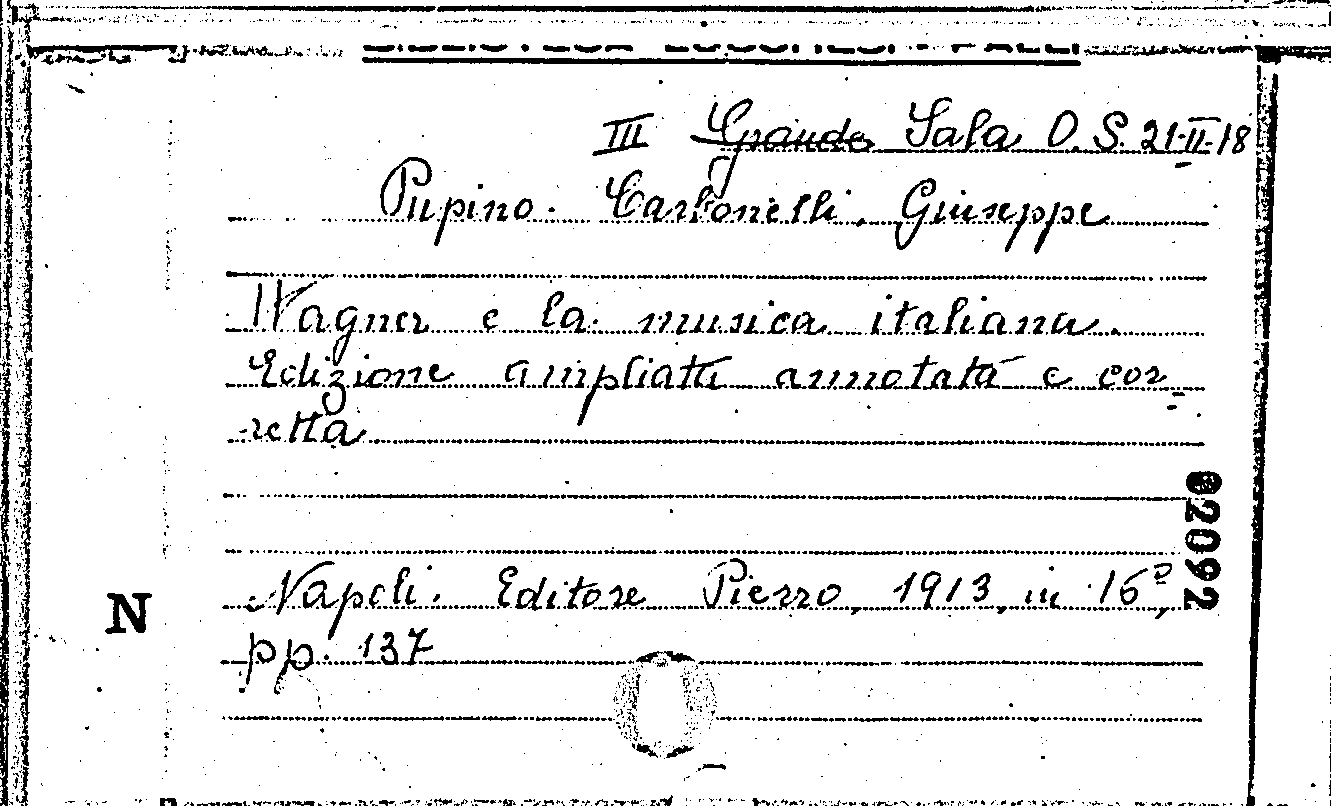 III Grande Sala O. S. 21-II-18
Pupino. Carbonelli, Giuseppe
Wagner e la musica italiana.
Edizione ampliata annotata e cor-
retta
82092
Napoli. Editore Pierro, 1913, in 16º,
N
pp. 137